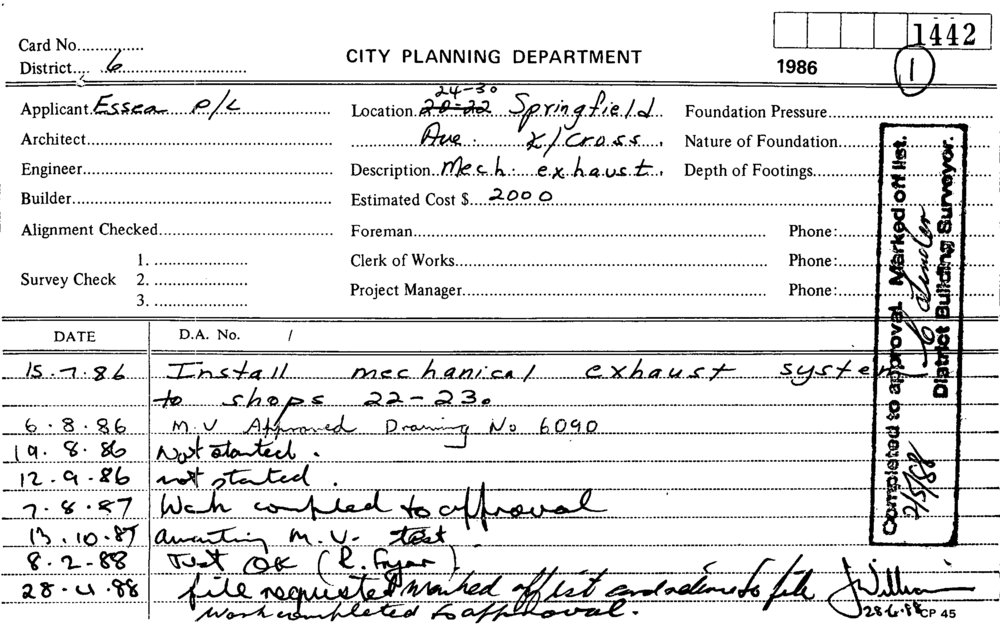 1442
Card No..............
District.... 6
CITY PLANNING DEPARTMENT
1986
1
Applicant Essea P/L
Location 20-22 24-30 Springfield
Foundation Pressure
Architect
Ave. K/Cross.
Nature of Foundation
Engineer
Description Mech. exhaust.
Depth of Footings
Builder
Estimated Cost $ 2000
Alignment Checked
Foreman
Phone:
Survey Check
1.
2.
3.
Clerk of Works
Phone:
Project Manager
Phone:
Completed to approval. Marked off list.
2/5/88
District Building Surveyor.
DATE D.A. No. /
15.7.86 Install mechanical exhaust system
to shops 22-23.
6.8.86 M.V Approved Drawing No 6090
19.8.86 Not started.
12.9.86 not started.
7.8.87 Work compled to approval
13.10.87 awaiting M.V. test
8.2.88 Test OK (R. Fryar).
28.4.88 file requested marked off list and returns to file J William
work completed to approval. 28.4.88 CP 45